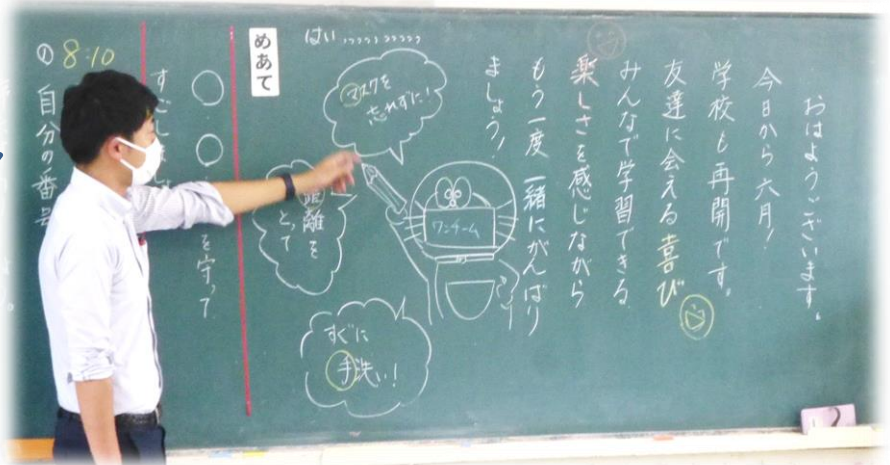 おはようございます。
今日から六月！
学校も再開です。
友達に会える喜び
みんなで学習できる
楽しさを感じながら
もう一度一緒にがんばり
ましょう！
はい，，，，，，，，，，
マスクを
忘れずに！
ワンチーム
距離を
とって
すぐに
手洗い！
めあて
○○
を守って
すごし
8:10
① 自分の番号